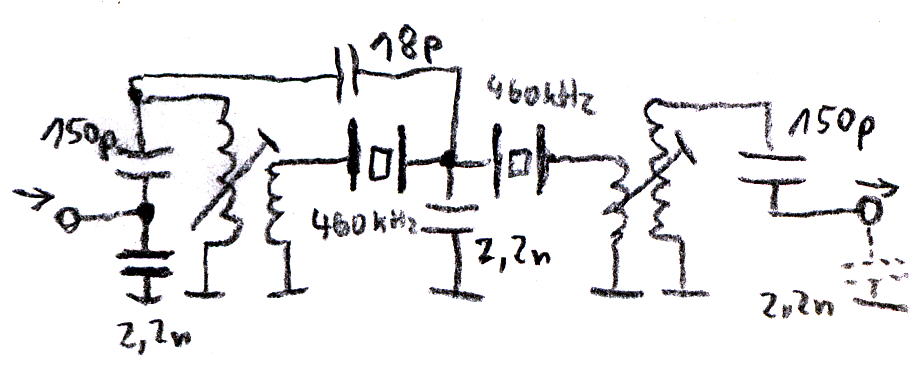 18p
460kHz
150p
150p
460kHz
2,2n
2,2n
2,2n